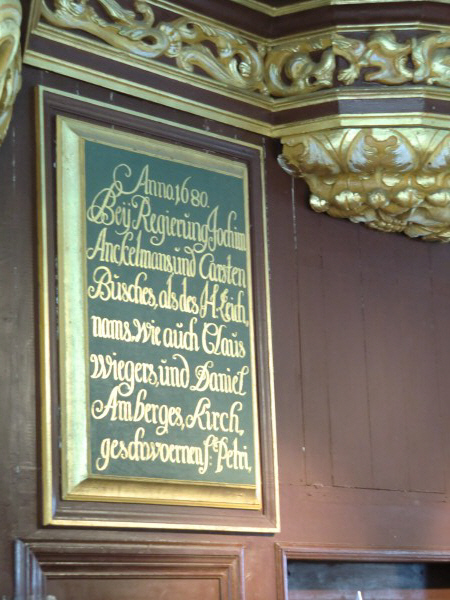 Anno. 1680.
Beÿ Regierung Jochim
Anckelmans, und Carsten
Busches, als des H. Leich,
nams. Wie auch Claus
Wiegers, und Daniel
Amberges, Kirch,
geschwoernen S: Petri,